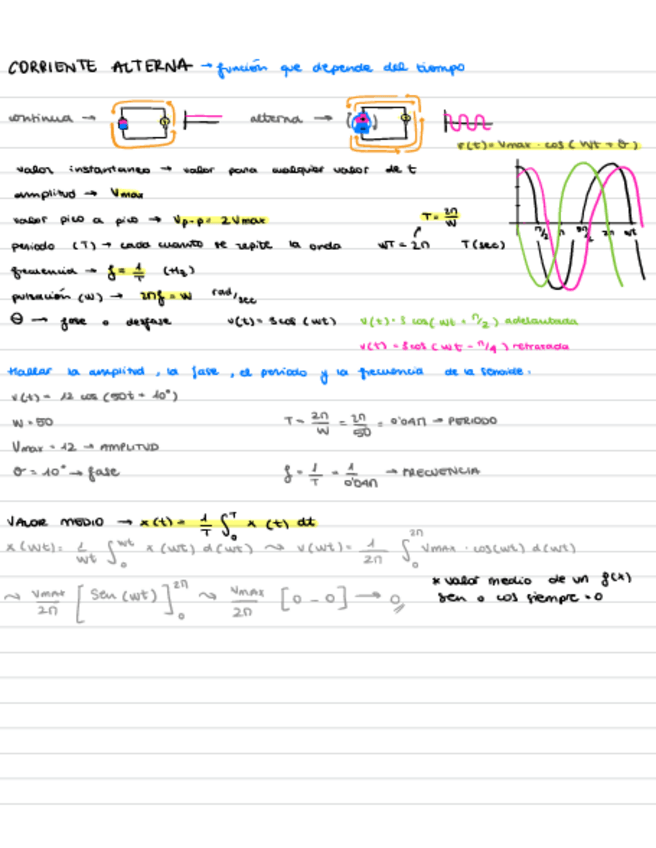 CORRIENTE ALTERNA → función que depende del tiempo
continua → alterna →
v(t) = Vmax · cos (Wt + θ)
valor instantaneo → valor para cualquier valor de t
amplitud → Vmax
valor pico a pico → Vp-p = 2Vmax T = 2π/W
periodo (T) → cada cuanto se repite la onda WT = 2π T (sec)
frecuencia → f = 1/T (Hz)
pulsación (W) → 2πf = W rad/sec
θ → fase o desfase v(t) = 3 cos (wt) v(t) = 3 cos (wt + π/2) adelantada
v(t) = 3 cos (wt - π/4) retrasada
Hallar la amplitud, la fase, el periodo y la frecuencia de la senoide.
v(t) = 12 cos (50t + 10°)
W = 50 T = 2π/W = 2π/50 = 0'04π → PERIODO
Vmax = 12 → AMPLITUD
θ = 10° → fase f = 1/T = 1/0'04π → FRECUENCIA
VALOR MEDIO → x(t) = 1/T ∫₀ᵀ x (t) dt
x (wt) = 1/wt ∫₀^wt x (wt) d(wt) ~> v(wt) = 1/2π ∫₀^2π Vmax · cos(wt) d(wt)
~> Vmax/2π [Sen (wt)]₀^2π ~> Vmax/2π [0 - 0] → 0 * valor medio de un f(x)
sen o cos siempre = 0